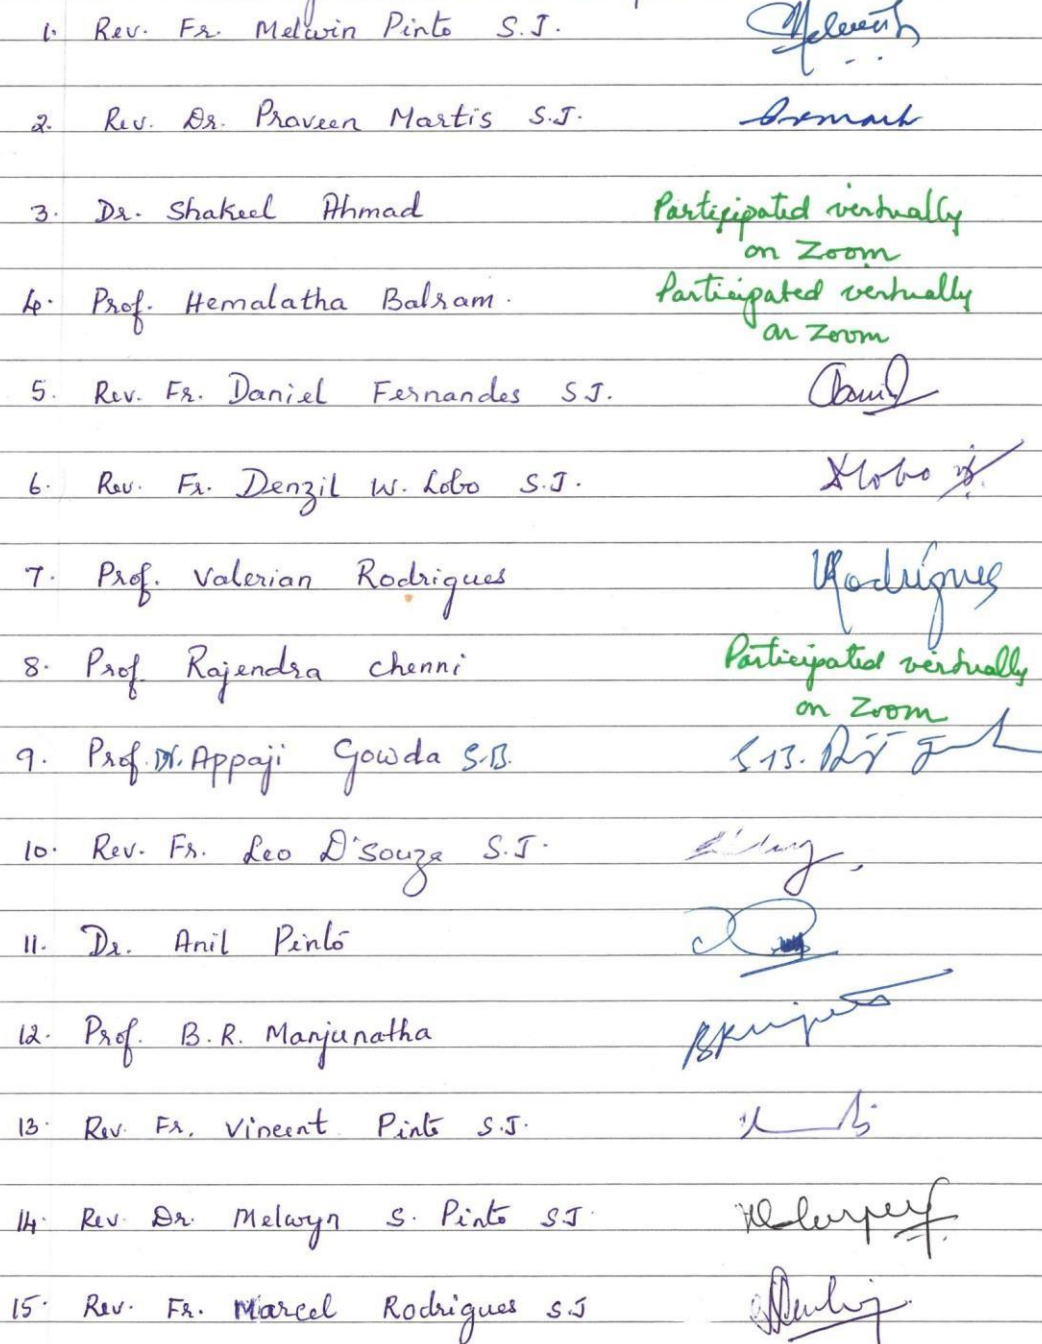 1. Rev. Fr. Melwin Pinto S.J.
2. Rev. Dr. Praveen Martis S.J.
3. Dr. Shakeel Ahmad Participated vertually
on Zoom
4. Prof. Hemalatha Balram. Participated vertually
on Zoom
5. Rev. Fr. Daniel Fernandes SJ.
6. Rev. Fr. Denzil W. Lobo S.J.
7. Prof. Valerian Rodrigues Rodrigues
8. Prof Rajendra chenni Participated vertually
on Zoom
9. Prof. Dr. Appaji Gowda S.B.
10. Rev. Fr. Leo D'souza S.J.
11. Dr. Anil Pinto
12. Prof. B.R. Manjunatha
13. Rev. Fr. Vincent Pinto S.J.
14. Rev. Dr. Melwyn S. Pinto SJ
15. Rev. Fr. Marcel Rodrigues SJ